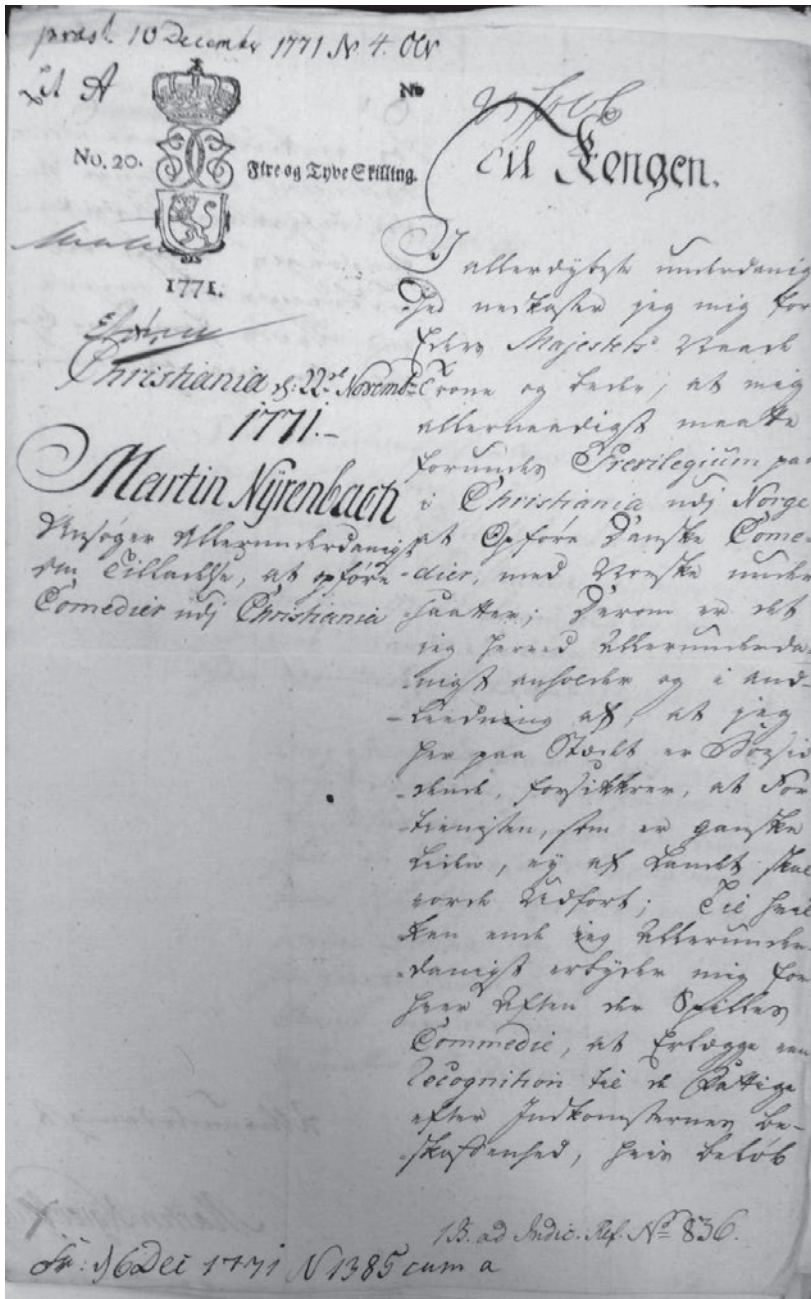 præs. 10 December 1771 N 4.
Lit A
No. 20.
Fire og Tyve Skilling.
1771.
Christiania, d: 22de Novembr
1771.-
Martin Nÿrenbach
Ansøger Allerunderdanigst
om Tilladelse, at opføre
Comedier udj Christiania
No
Til Kongen.
I allerdybeste underdanig
hed nedkaster jeg mig for
Eders Majestets Naade
Trone og beder, at mig
allernaadigst maatte
forundes Previlegium paa
i Christiania udj Norge
at Opføre Danske Come-
-dier, med Norske under
saatter; Derom er det
jeg herved Allerunderda-
-nigst anholder og i And-
-leedning af, at jeg
her paa Stædet er Boesid
-dende, forsikkrer, at For
-tienesten, som er ganske
liden, ey af Landet skal
vorde Udført; Til hvil
ken ende jeg Allerunder-
-danigst erbyder mig for
hver Aften der Spilles
Commedie, at Erlægge een
Recognition til de Fattige
efter Indkomsternes be-
-skaffenhed, hvis beløb
1B. ad Indic. Ref. No 836.
d 6 Dec 1771 N 1385 cum a